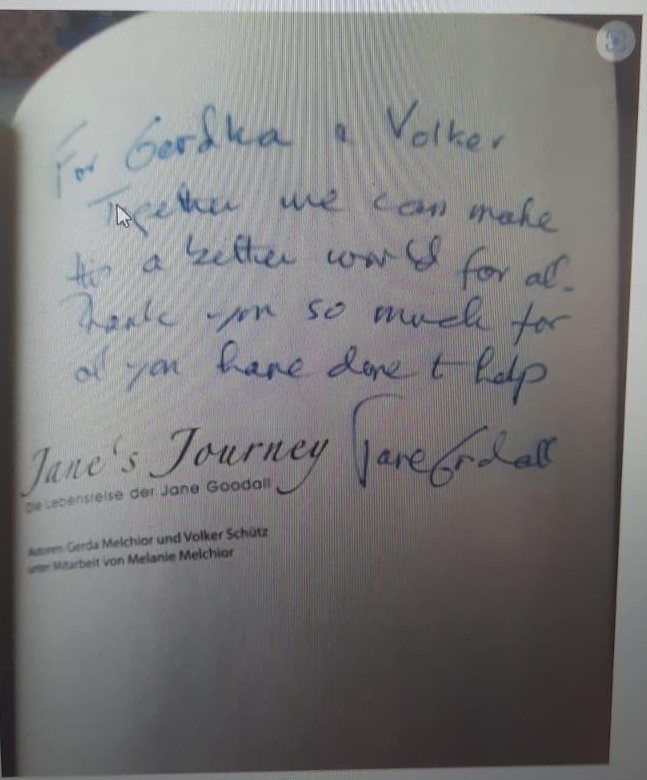 For Gerdha & Volker
Together we can make
this a better world for all.
Thank you so much for
all you have done to help
Jane Goodall
Jane's Journey
Die Lebensreise der Jane Goodall
Autoren: Gerda Melchior und Volker Schütz
unter Mitarbeit von Melanie Melchior